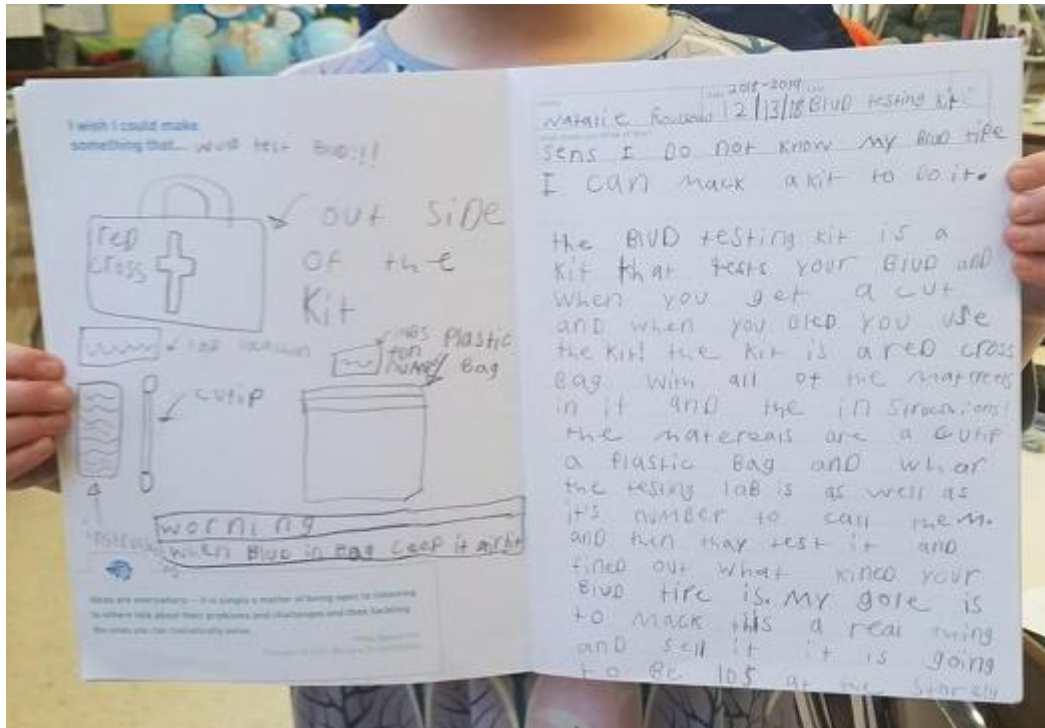 I wish I could make
something that... wuD test BuD!!!
out side
of the
Kit
reD
cross
Plastic
Bag
cutip
worning
when BluD in Bag ceep it
Ideas are everywhere — it is simply a matter of being open to listening
to others talk about their problems and challenges and then tackling
the ones you can realistically solve.
2018-2019
Natalie 12/13/18 BluD testing kit
sens I Do not know my BluD tipe
I can mack a kit to Do it.
the BluD testing kit is a
kit that tests your BluD anD
when you get a cut
anD when you BleD you use
the Kit! the Kit is a reD cross
Bag with all of the
in it anD the
the matereals are a cutip
a Plastic Bag anD what
the testing laB is as well as
it's numBer to call them.
anD then thay test it anD
fineD out what kineD your
BluD tipe is. My gole is
to mack this a real thing
anD sell it it is going
to Be 10$ at the